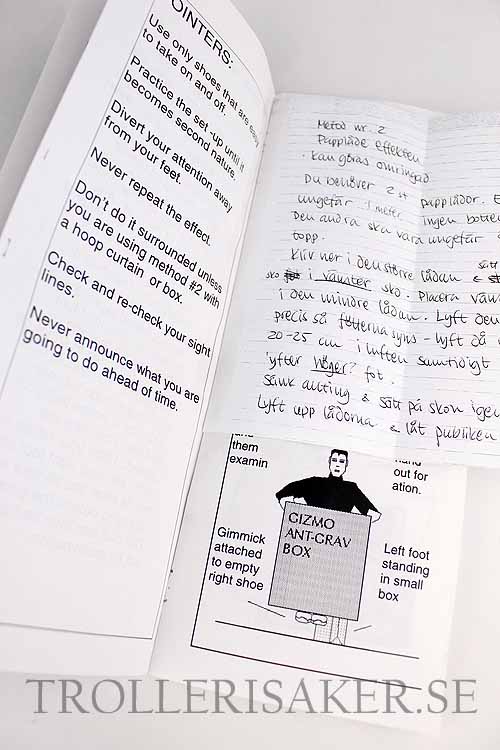 OINTERS:
Use only shoes that are easy
to take on and off.
Practice the set -up until it
becomes second nature.
Divert your attention away
from your feet.
Never repeat the effect.
Don't do it surrounded unless
you are using method #2 with
a hoop curtain or box.
Check and re-check your sight
lines.
Never announce what you are
going to do ahead of time.
Metod nr. 2
Papplåde effekten
· Kan göras omringad
Du behöver 2 st papplådor. E
ungefär 1 meter ingen botten
Den andra ska vara ungefär
topp.
Kliv ner i den större lådan & sätt
sko i vänster sko. Placera vänst
i den mindre lådan. Lyft den
precis så fötterna syns - lyft då
20-25 cm i luften samtidigt
lyfter höger? fot.
Sänk allting & sätt på skon igen
Lyft upp lådorna & låt publiken
them
examin
hand
out for
ation.
GIZMO
ANT-GRAV
BOX
Gimmick
attached
to empty
right shoe
Left foot
standing
in small
box
TROLLERISAKER.SE